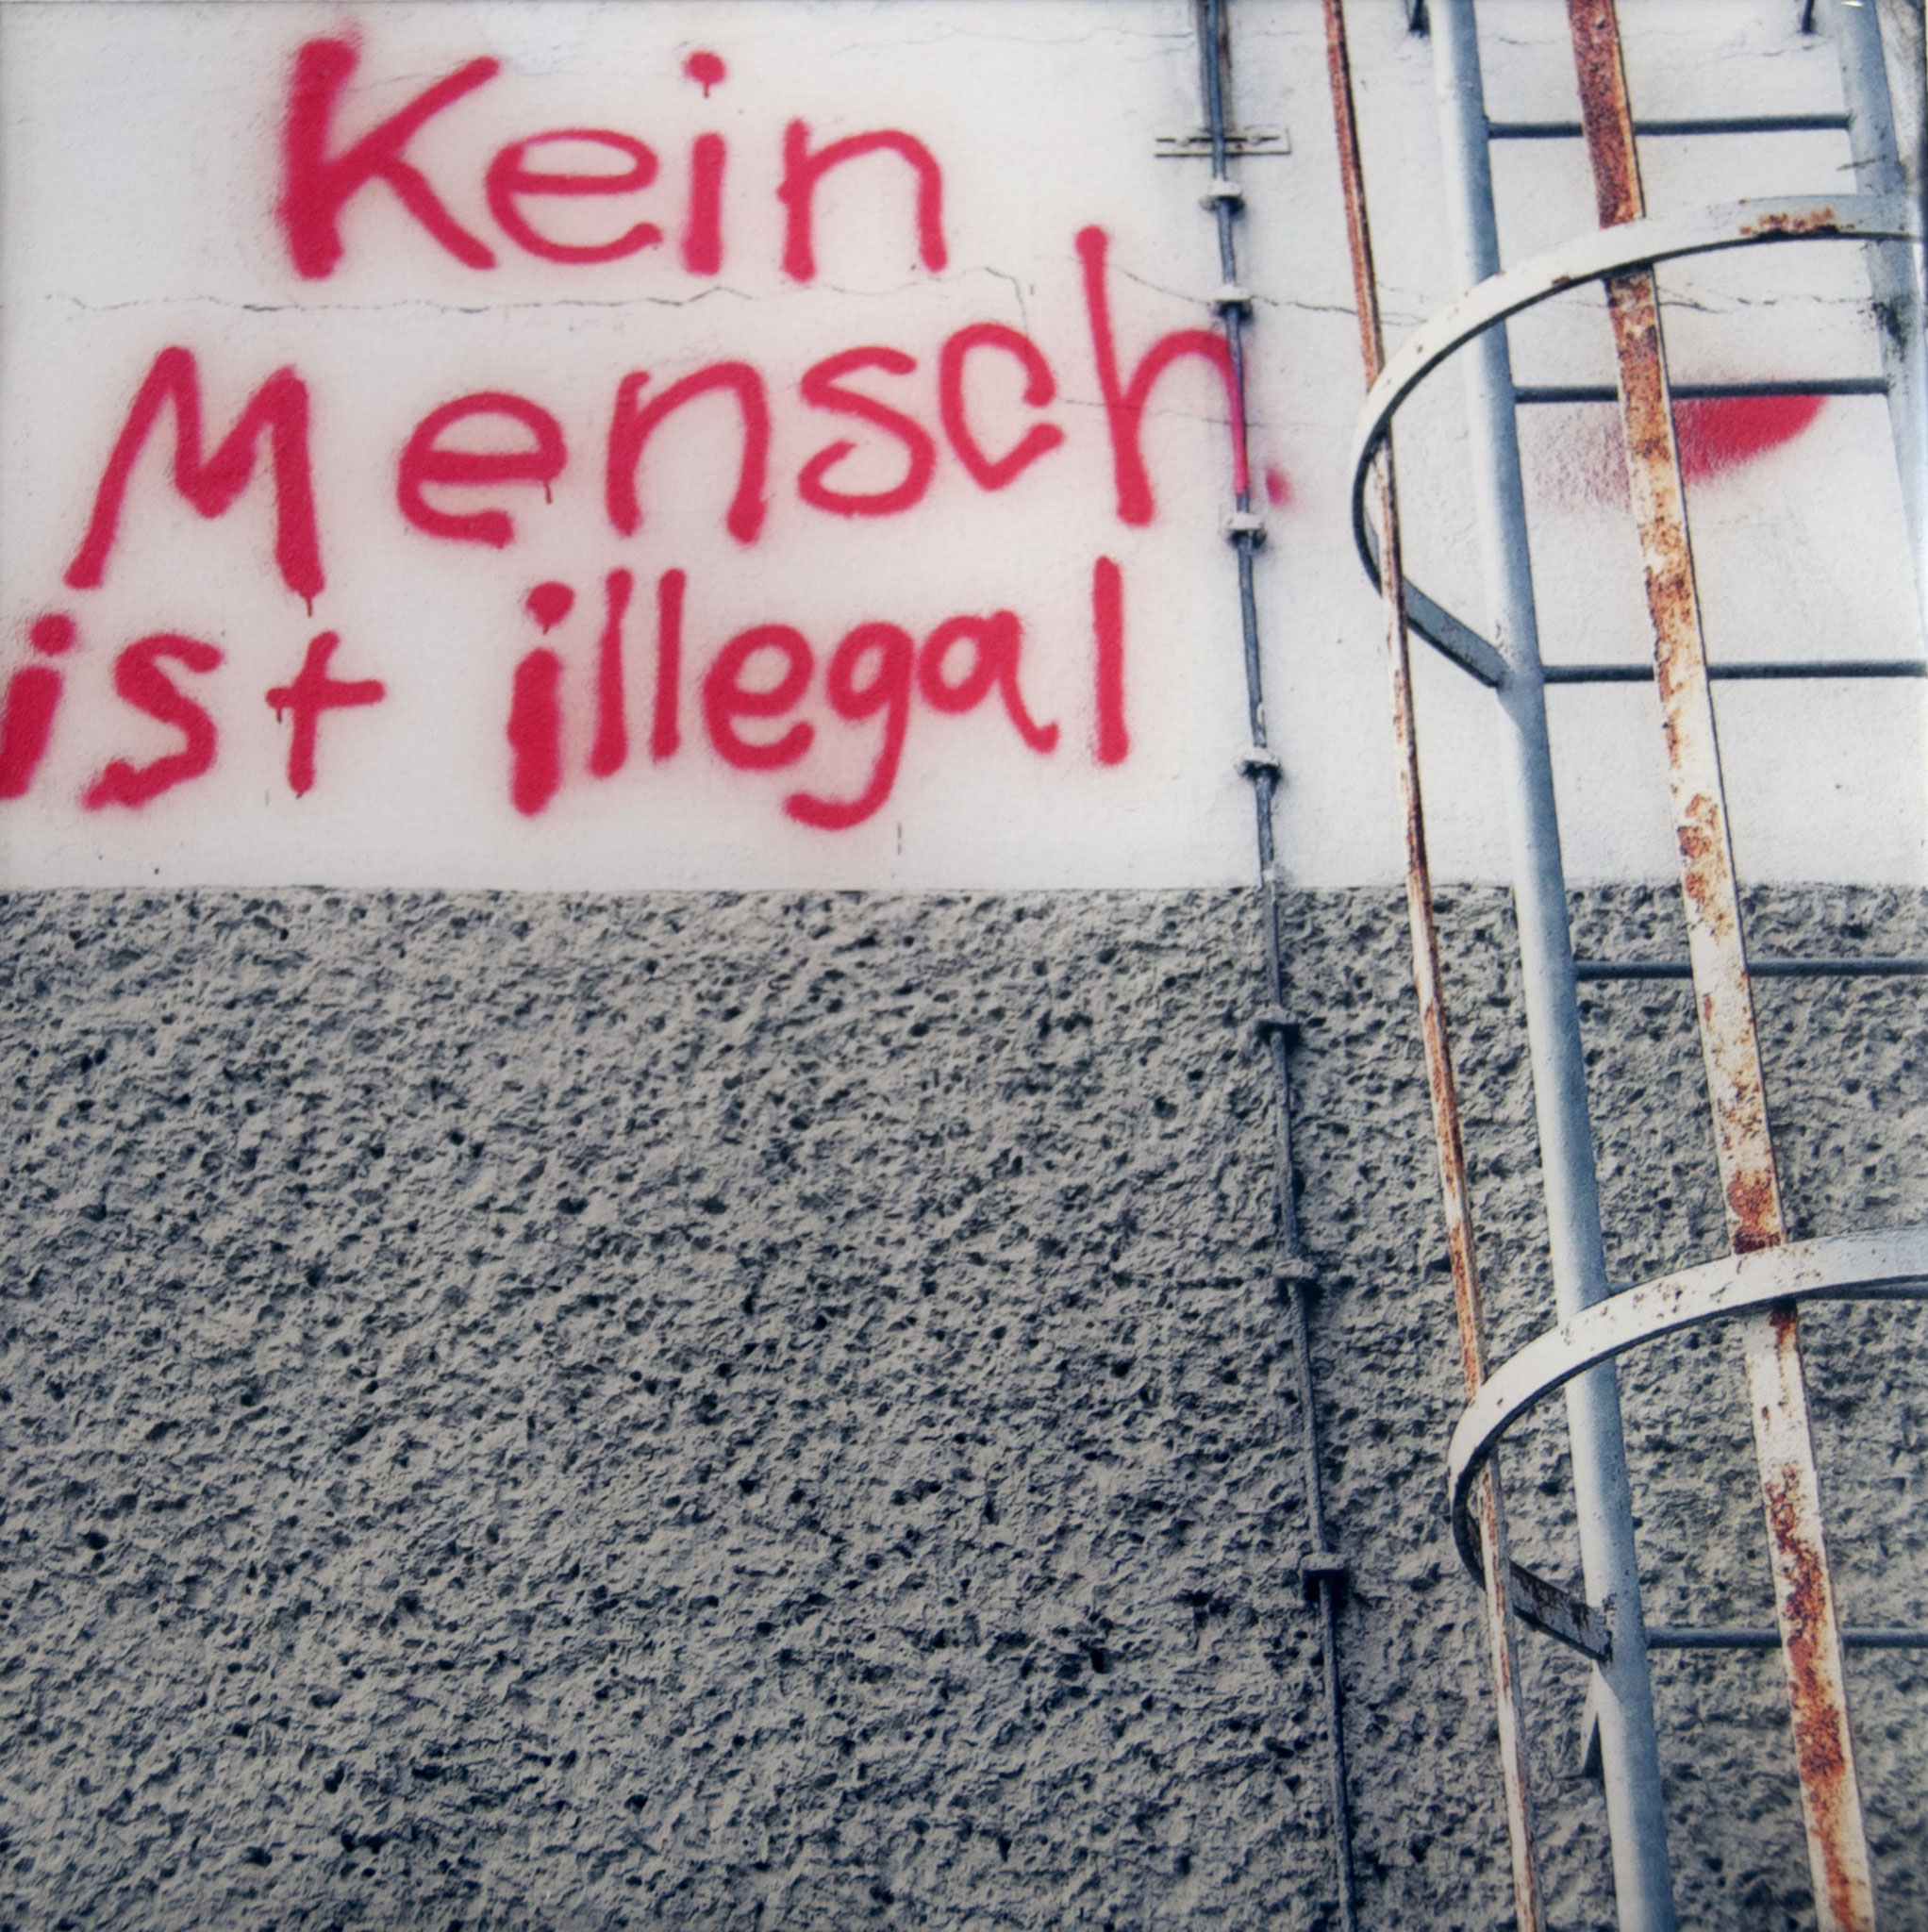 Kein
Mensch
ist illegal